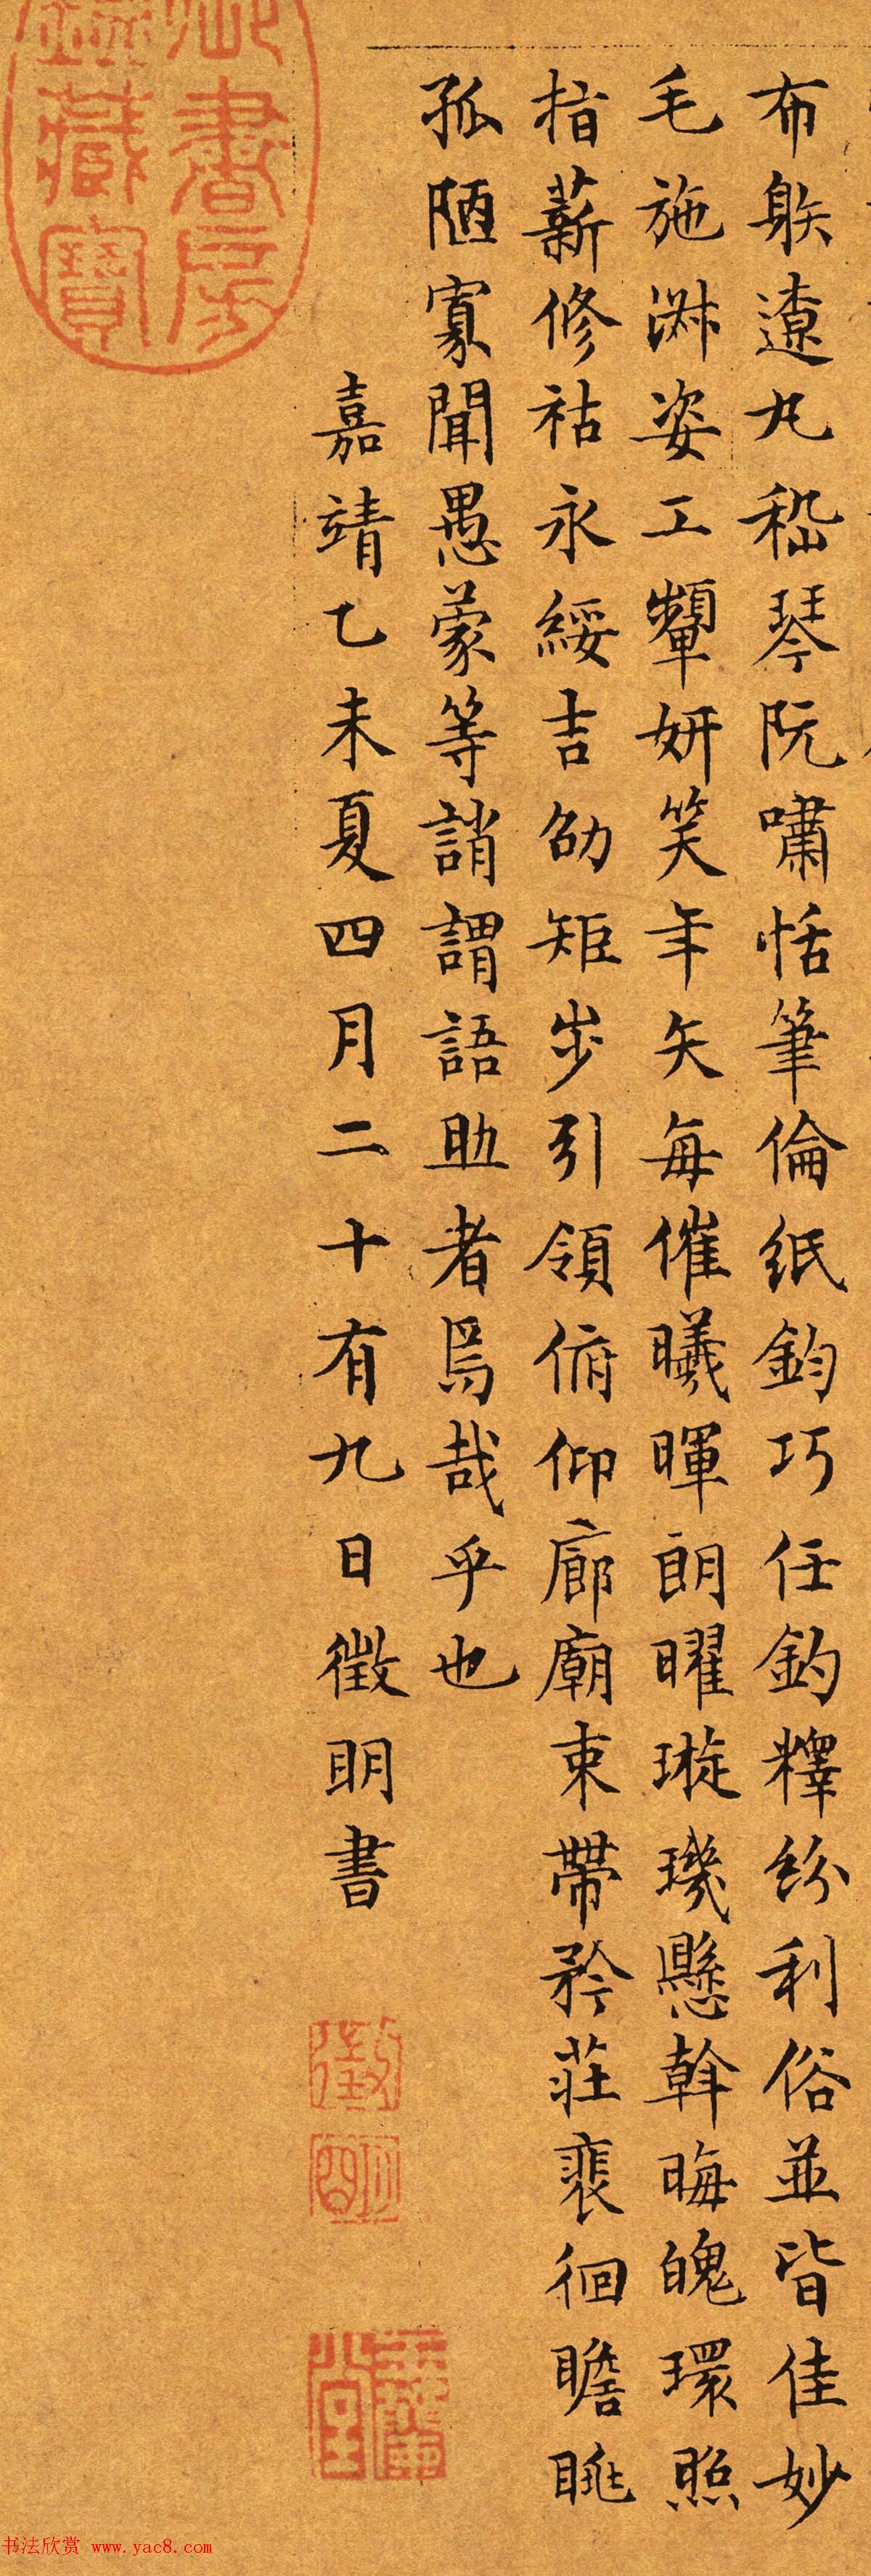 布躲遼丸嵇琴阮嘯恬筆倫紙鈞巧任釣釋紛利俗並皆佳妙
毛施淑姿工顰妍笑年矢每催曦暉朗曜璇璣懸斡晦魄環照
指薪修祜永綏吉劭矩步引領俯仰廊廟束帶矜莊裴徊瞻眺
孤陋寡聞愚蒙等誚謂語助者焉哉乎也
嘉靖乙未夏四月二十有九日徵明書
御書房鑑藏寶
徵明
玉蘭堂
书法欣赏 www.yac8.com